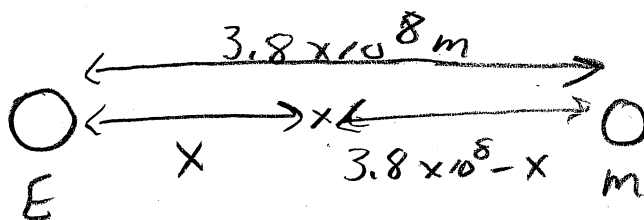 3.8 x 10⁸ m
x
X
3.8 x 10⁸ - X
E
m